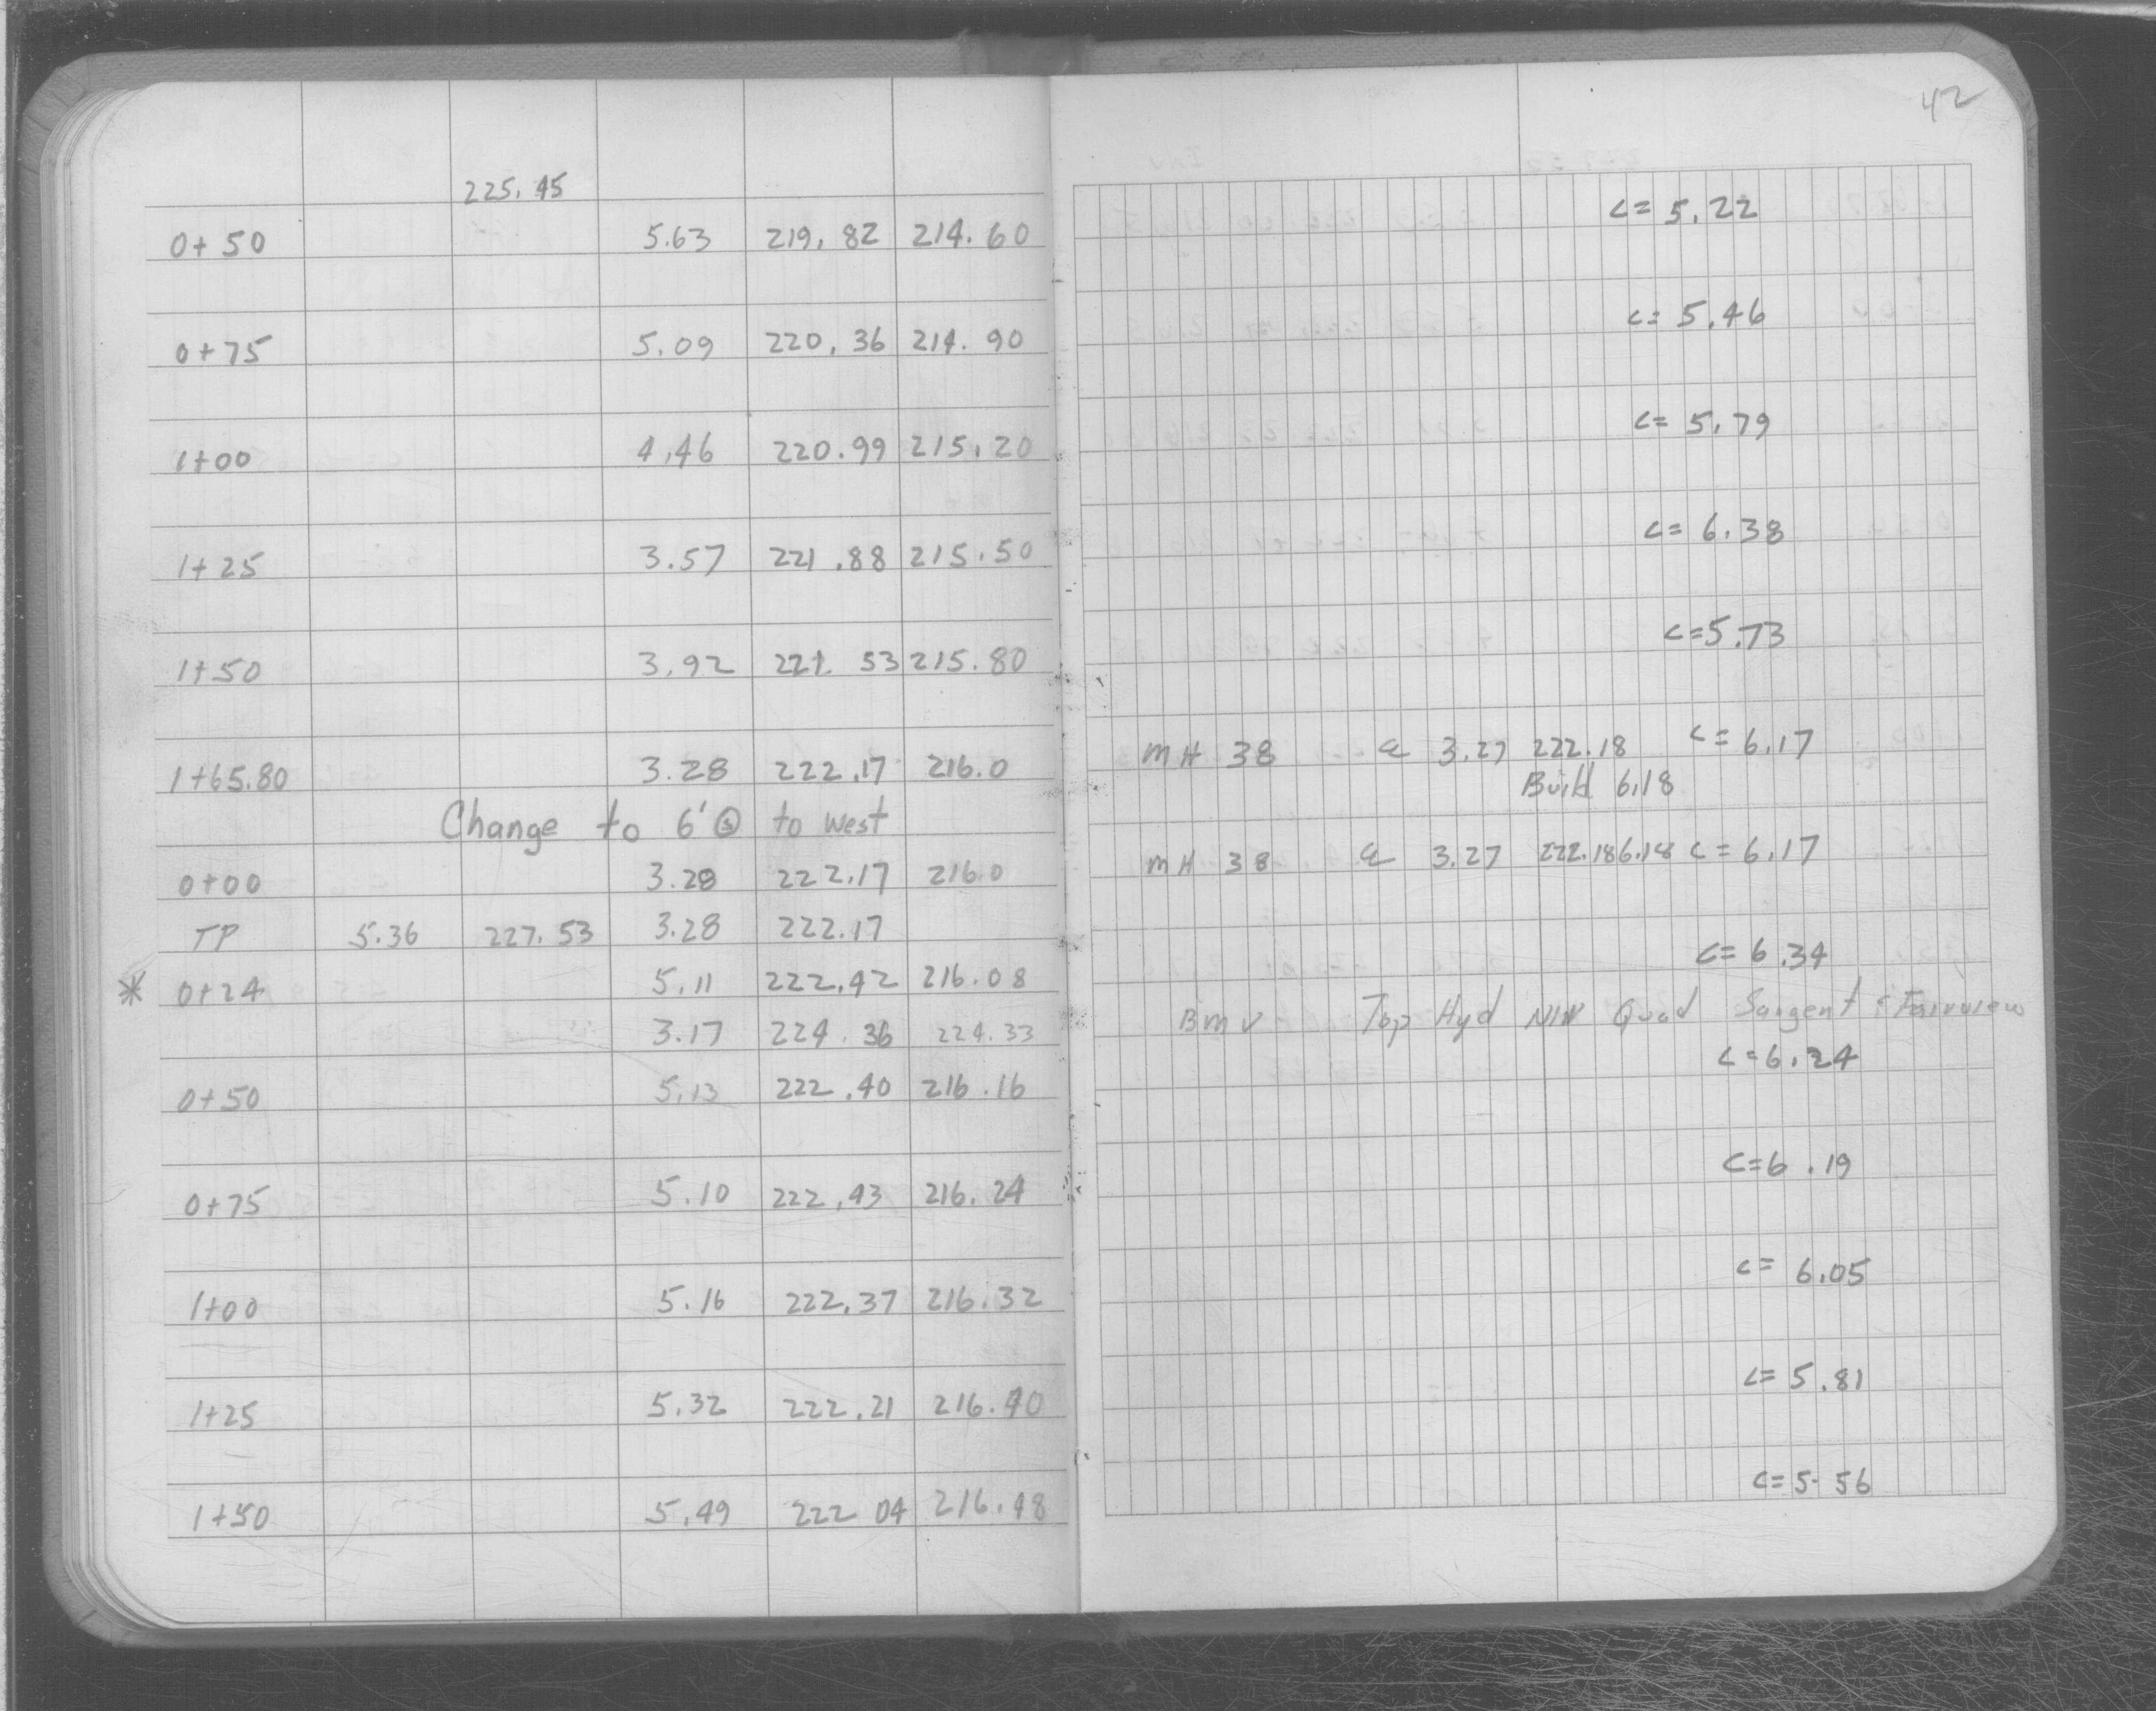 42
225.45
c= 5.22
0+50 5.63 219.82 214.60
c= 5.46
0+75 5.09 220.36 214.90
c= 5.79
1+00 4.46 220.99 215.20
c= 6.38
1+25 3.57 221.88 215.50
c=5.73
1+50 3.92 221 53 215.80
1+65.80 3.28 222.17 216.0 MH 38 3.27 222.18 c= 6.17
Build 6.18
Change to 6' to west
0+00 3.28 222.17 216.0 MH 38 3.27 222.18 6.18 c= 6.17
TP 5.36 227.53 3.28 222.17
c= 6.34
* 0+24 5.11 222.42 216.08
3.17 224.36 224.33 Bm Top Hyd NW Quad Sargent & Fairview
c=6.24
0+50 5.13 222.40 216.16
c=6.19
0+75 5.10 222.43 216.24
c= 6.05
1+00 5.16 222.37 216.32
c= 5.81
1+25 5.32 222.21 216.40
c=5.56
1+50 5.49 222 04 216.48